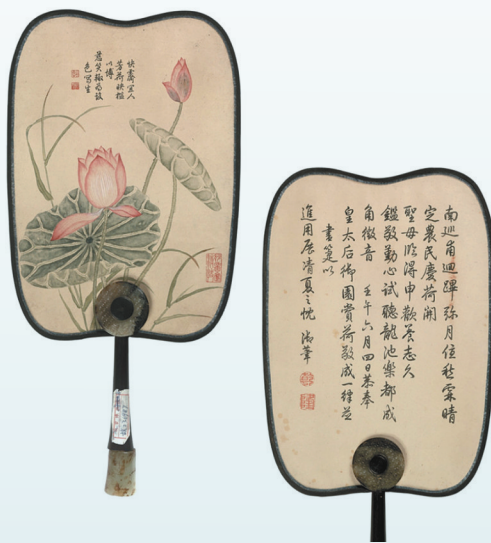 快霽宜人
芳荷映檻
以博
慈笑輒為設
色寫生
南巡甫迴蹕弥月住愁霖晴
定農民慶荷開
聖母臨得申歡養志久
鑑敬勤心試聽龍池樂都成
角徵音 壬午六月四日恭奉
皇太后御園賞荷敬成一律並
書箑以
進用展清夏之忱 御筆